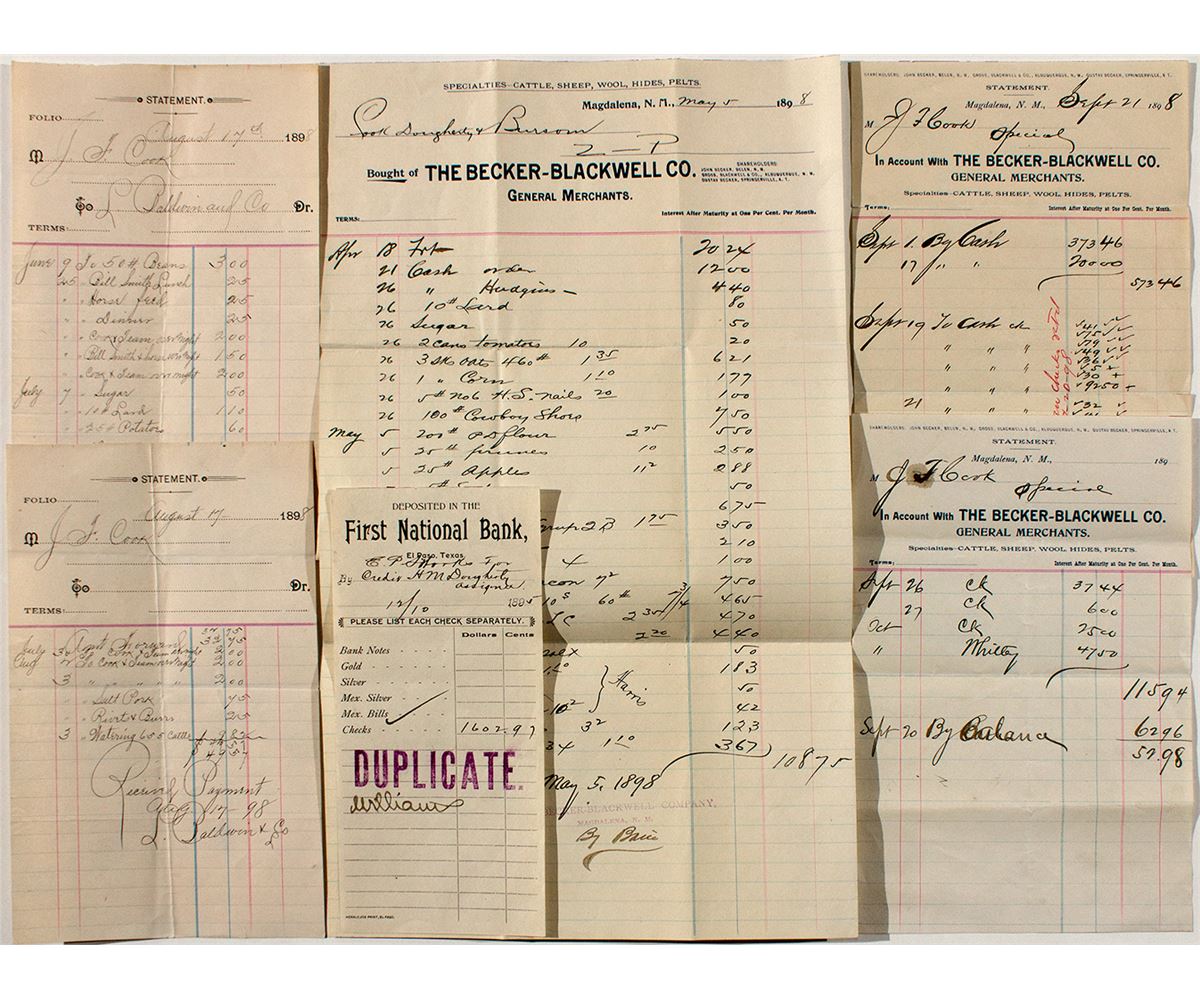 STATEMENT.
FOLIO
August 17th 1898
M J. F. Cook
To L. Baldwin and Co Dr.
TERMS
June 9 To 50 # Beans 3 00
25 " Bill Smith Lunch 25
" " Horse feed 25
" " Dinner 25
" " Cook & Team over night 2 00
" " Bill Smith & horse over night 1 50
" " Cook & Team over night 2 00
July 7 " Sugar 50
" " 10 # Lard 1 10
" " 25 # Potatoes 60
STATEMENT.
FOLIO
August 17 1898
M J. F. Cook
To Dr.
TERMS
July 30 Amt Forward
Aug 2 To Cook & Team over night 2 00
3 " " " " " 2 00
" " Salt Pork 75
" " Rivets & Burrs 25
3 " Watering 655 Cattle
Received Payment
Aug 17 - 98
L. Baldwin & Co
SPECIALTIES—CATTLE, SHEEP, WOOL, HIDES, PELTS.
Magdalena, N. M., May 5 1898
Cook Dougherty & Bursom
Bought of THE BECKER-BLACKWELL CO.
SHAREHOLDERS:
JOHN BECKER, BELEN, N. M.
GROSS, BLACKWELL & CO., ALBUQUERQUE, N. M.
GUSTAV BECKER, SPRINGERVILLE, A. T.
GENERAL MERCHANTS.
TERMS: Interest After Maturity at One Per Cent. Per Month.
Apr 18 Frt 20 24
21 Cash order 12 00
26 " Hudgins - 4 40
26 10 # Lard 80
26 Sugar 50
26 2 cans tomatoes 10 20
26 3 sks oats 460 # 1 35 6 21
26 1 " Corn 1 10 1 77
26 5 # No 6 H.S. nails 20 1 00
26 100 # Cowboy Shoes 7 50
May 5 200 # PD flour 2 75 5 50
5 25 # prunes 10 2 50
5 25 # Apples 11 2 2 88
50
6 75
1 75 3 50
2 10
4 1 00
7 2 7 50
60 # 4 65
2 35 4 70
2 20 4 40
50
1 83
Harris 50
42
3 2 1 23
34 1 10 3 67
108 75
May 5, 1898
BECKER-BLACKWELL COMPANY,
MAGDALENA, N. M.
By
DEPOSITED IN THE
First National Bank,
El Paso, Texas,
For
By Credit H M Dougherty
assignee
12/10 1895
PLEASE LIST EACH CHECK SEPARATELY.
Dollars Cents
Bank Notes
Gold
Silver
Mex. Silver
Mex. Bills
Checks 1602.97
DUPLICATE.
Williams
SHAREHOLDERS: JOHN BECKER, BELEN, N. M., GROSS, BLACKWELL & CO., ALBUQUERQUE, N. M., GUSTAV BECKER, SPRINGERVILLE, A. T.
STATEMENT.
Magdalena, N. M., Sept 21 1898
M J F Cook
Special
In Account With THE BECKER-BLACKWELL CO.
GENERAL MERCHANTS.
Specialties—CATTLE, SHEEP, WOOL, HIDES, PELTS.
Terms: Interest After Maturity at One Per Cent. Per Month.
Sept 1 By Cash 373 46
17 " " 200 00
573 46
Sept 19 To Cash ck
" " "
" " "
" " "
21 " "
SHAREHOLDERS: JOHN BECKER, BELEN, N. M., GROSS, BLACKWELL & CO., ALBUQUERQUE, N. M., GUSTAV BECKER, SPRINGERVILLE, A. T.
STATEMENT.
Magdalena, N. M., 189
M J F Cook
Special
In Account With THE BECKER-BLACKWELL CO.
GENERAL MERCHANTS.
Specialties—CATTLE, SHEEP, WOOL, HIDES, PELTS.
Terms: Interest After Maturity at One Per Cent. Per Month.
Sept 26 ck 37 44
27 ck 6 00
Oct ck 25 00
" Whitley 47 50
115 94
Sept 20 By Balance 62 96
52.98